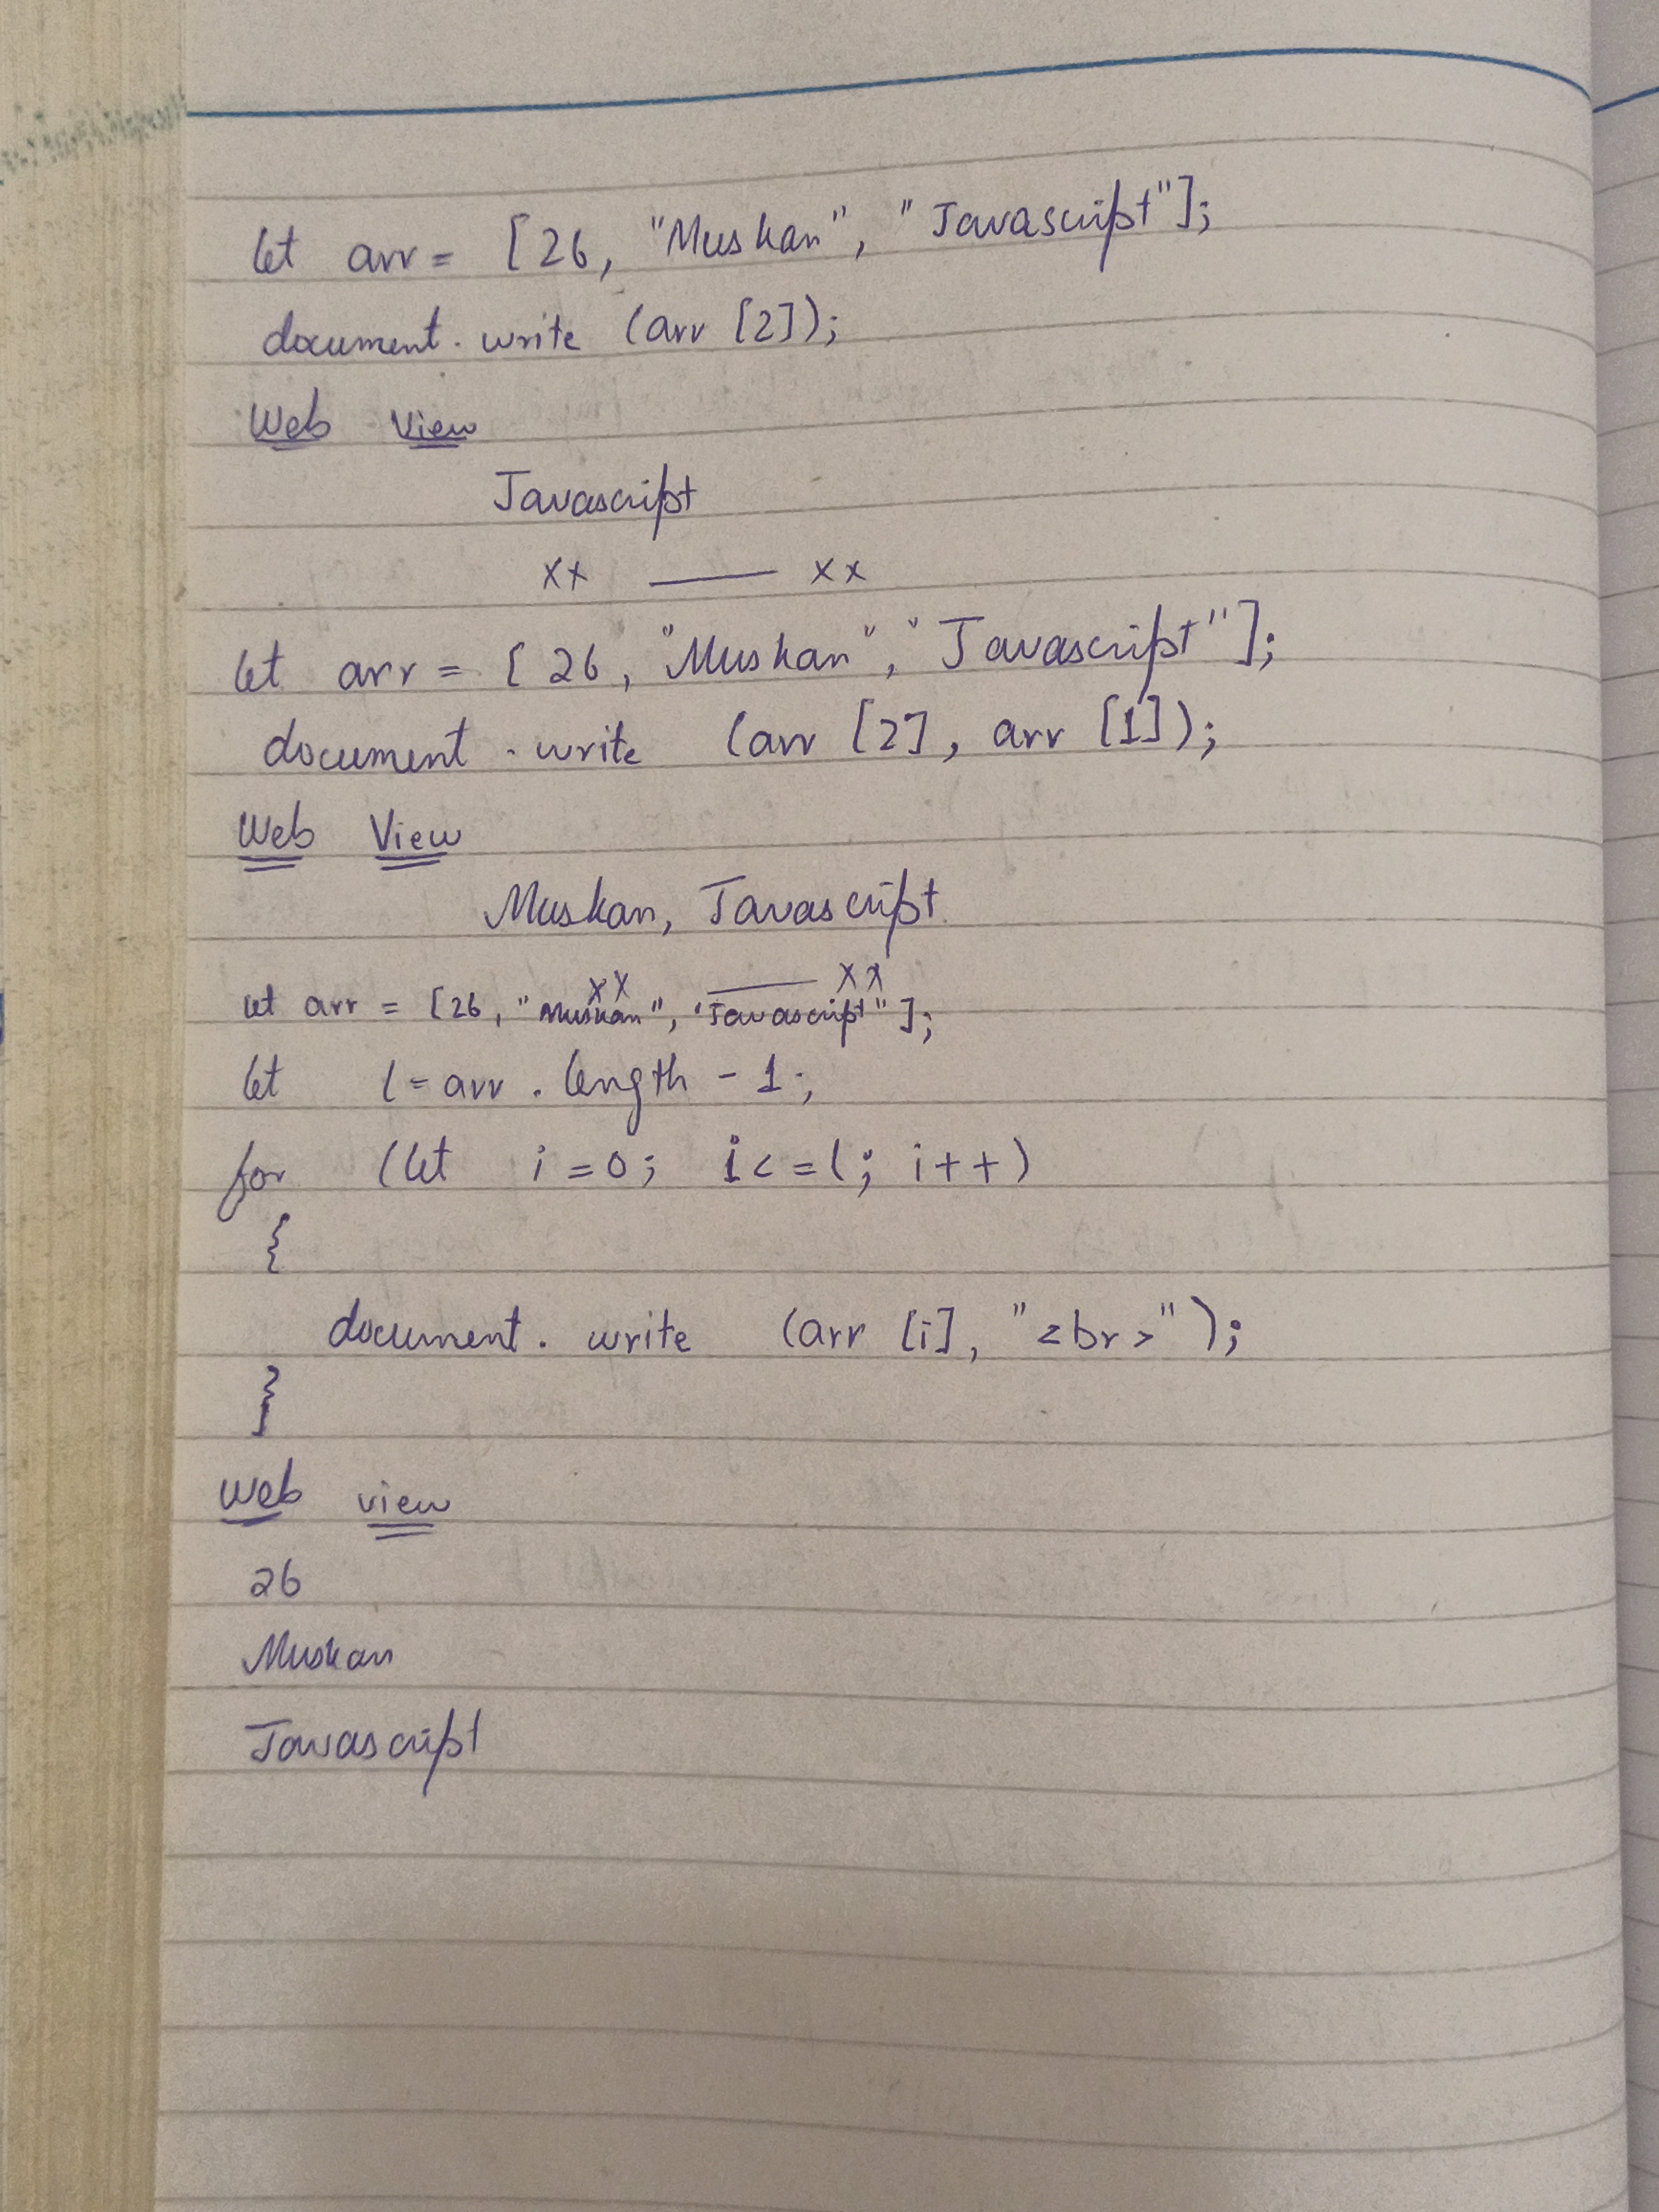 let arr = [26, "Muskan", "Javascript"];
document.write (arr [2]);
Web View
Javascript
xx —— xx
let arr = [26, "Muskan", "Javascript"];
document.write (arr [2], arr [1]);
Web View
Muskan, Javascript
xx —— xx
let arr = [26, "Muskan", "Javascript"];
let l = arr.length - 1;
for (let i = 0; i <= l; i++)
{
document.write (arr [i], "<br>");
}
Web view
26
Muskan
Javascript